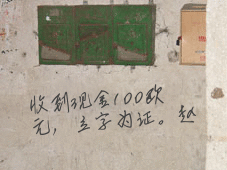 收到现金100欧
元，立字为证。赵